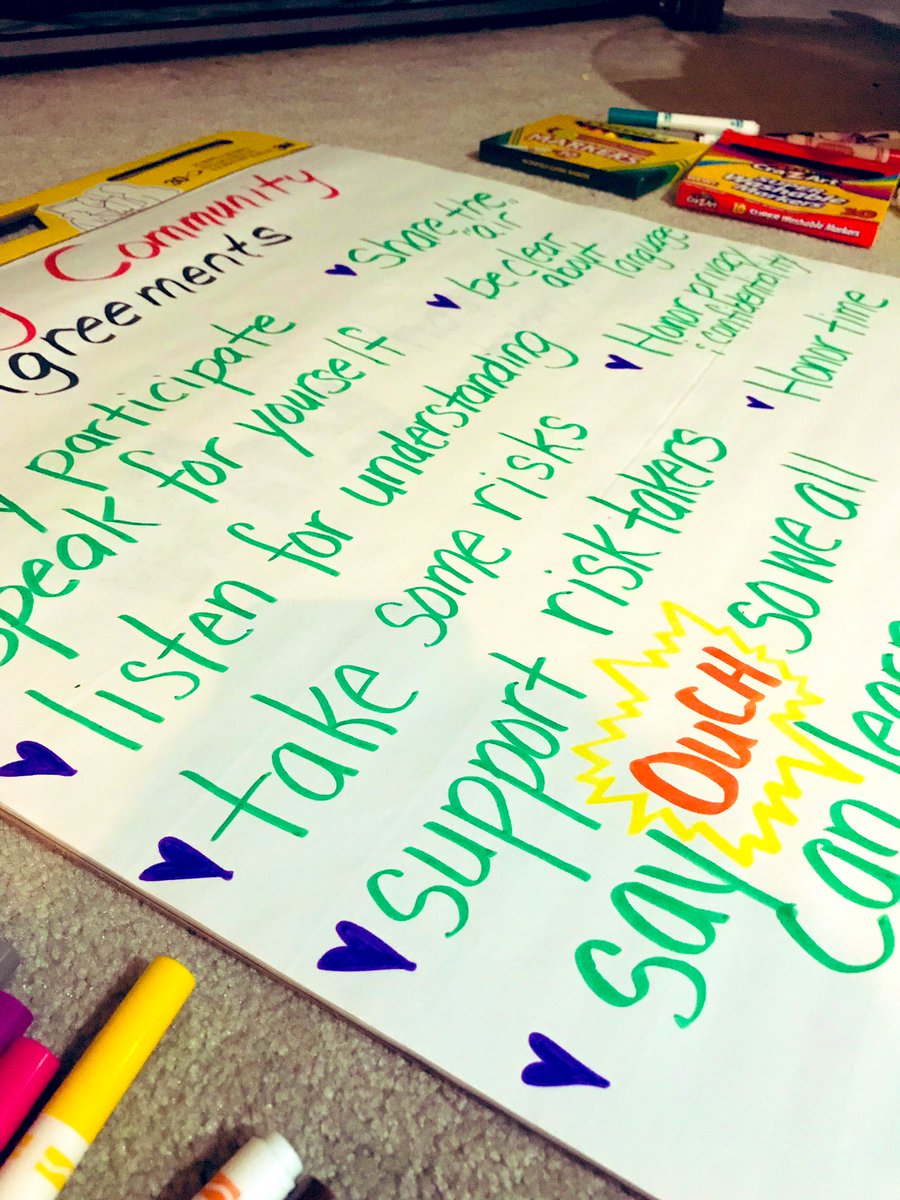 Community
Agreements
participate
speak for yourself
listen for understanding
take some risks
support risk takers
say OUCH so we all
can learn
share the
"air"
be clear
about
language
Honor privacy
& confidentiality
Honor time
MARKERS
Cra-Z-Art
Washable
Markers